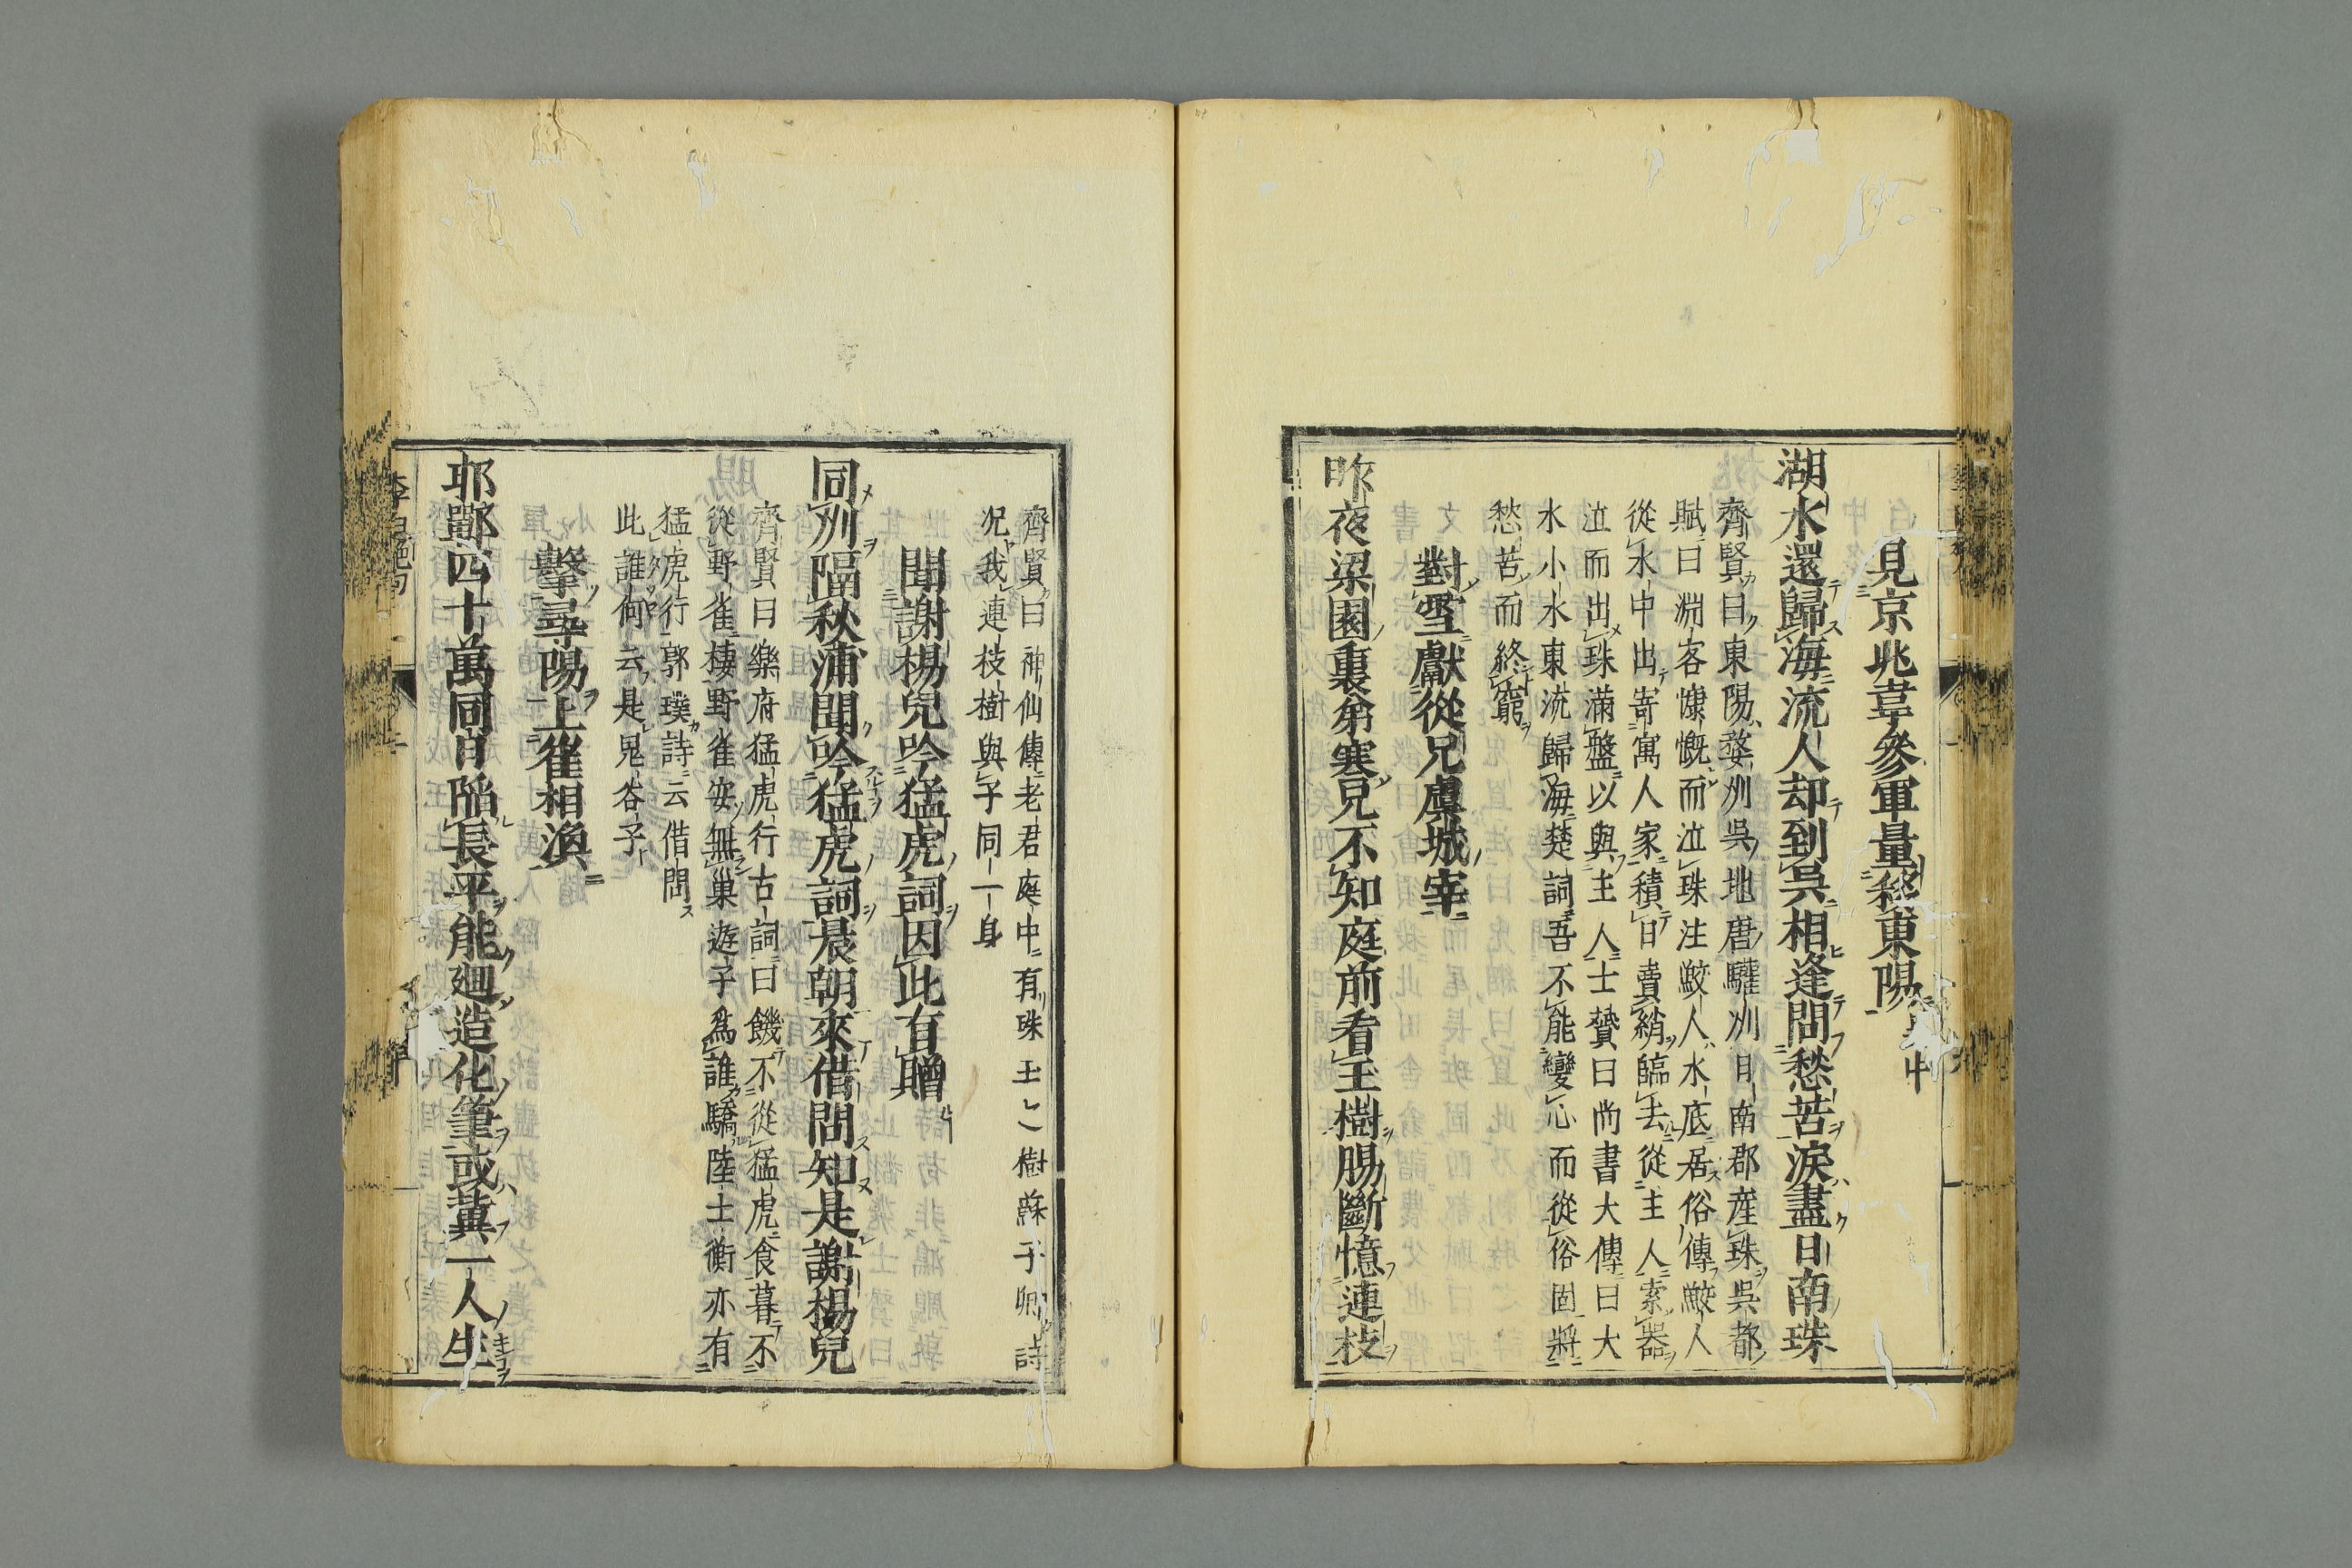 見京兆韋參軍量移東陽
湖水還歸海流人却到呉相逢問愁苦淚盡日南珠
齊賢曰東陽婺州呉地唐驩州日南郡産珠呉都
賦曰淵客慷慨而泣珠注鮫人水底居俗傳鮫人
從水中出寄寓人家積日賣綃臨去從主人索器
泣而出珠滿盤以與主人士贇曰尚書大傳曰大
水小水東流歸海楚詞吾不能變心而從俗固將
愁苦而終窮
對雪獻從兄虞城宰
昨夜梁園裏弟寒兄不知庭前看玉樹腸斷憶連枝
齊賢曰神仙傳老君庭中有珠玉之樹蘇子卿詩
况我連枝樹與子同一身
聞謝楊兒吟猛虎詞因此有贈
同州隔秋浦聞吟猛虎詞晨朝來借問知是謝楊兒
齊賢曰樂府猛虎行古詞曰饑不從猛虎食暮不
從野雀棲野雀安無巢遊子爲誰驕陸士衡亦有
猛虎行郭璞詩云借問
此誰何云是鬼谷子
繫尋陽上崔相渙
邯鄲四十萬同日陷長平能廻造化筆或冀一人生
李白絶句